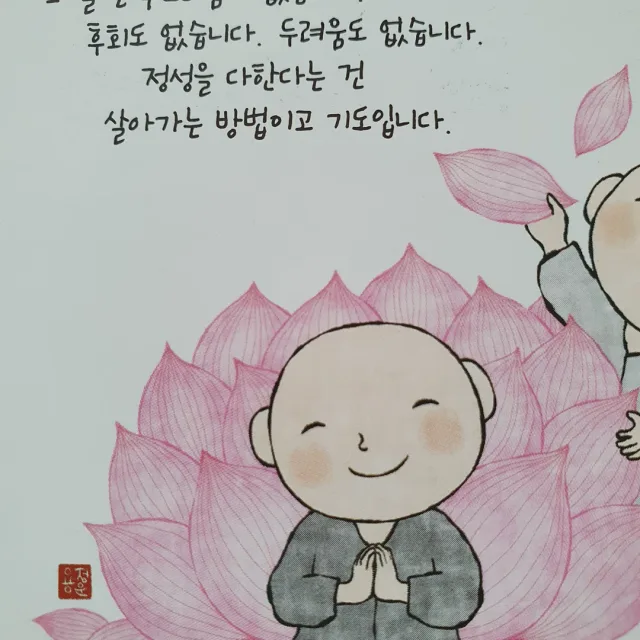 후회도 없습니다. 두려움도 없습니다.
정성을 다한다는 건
살아가는 방법이고 기도입니다.